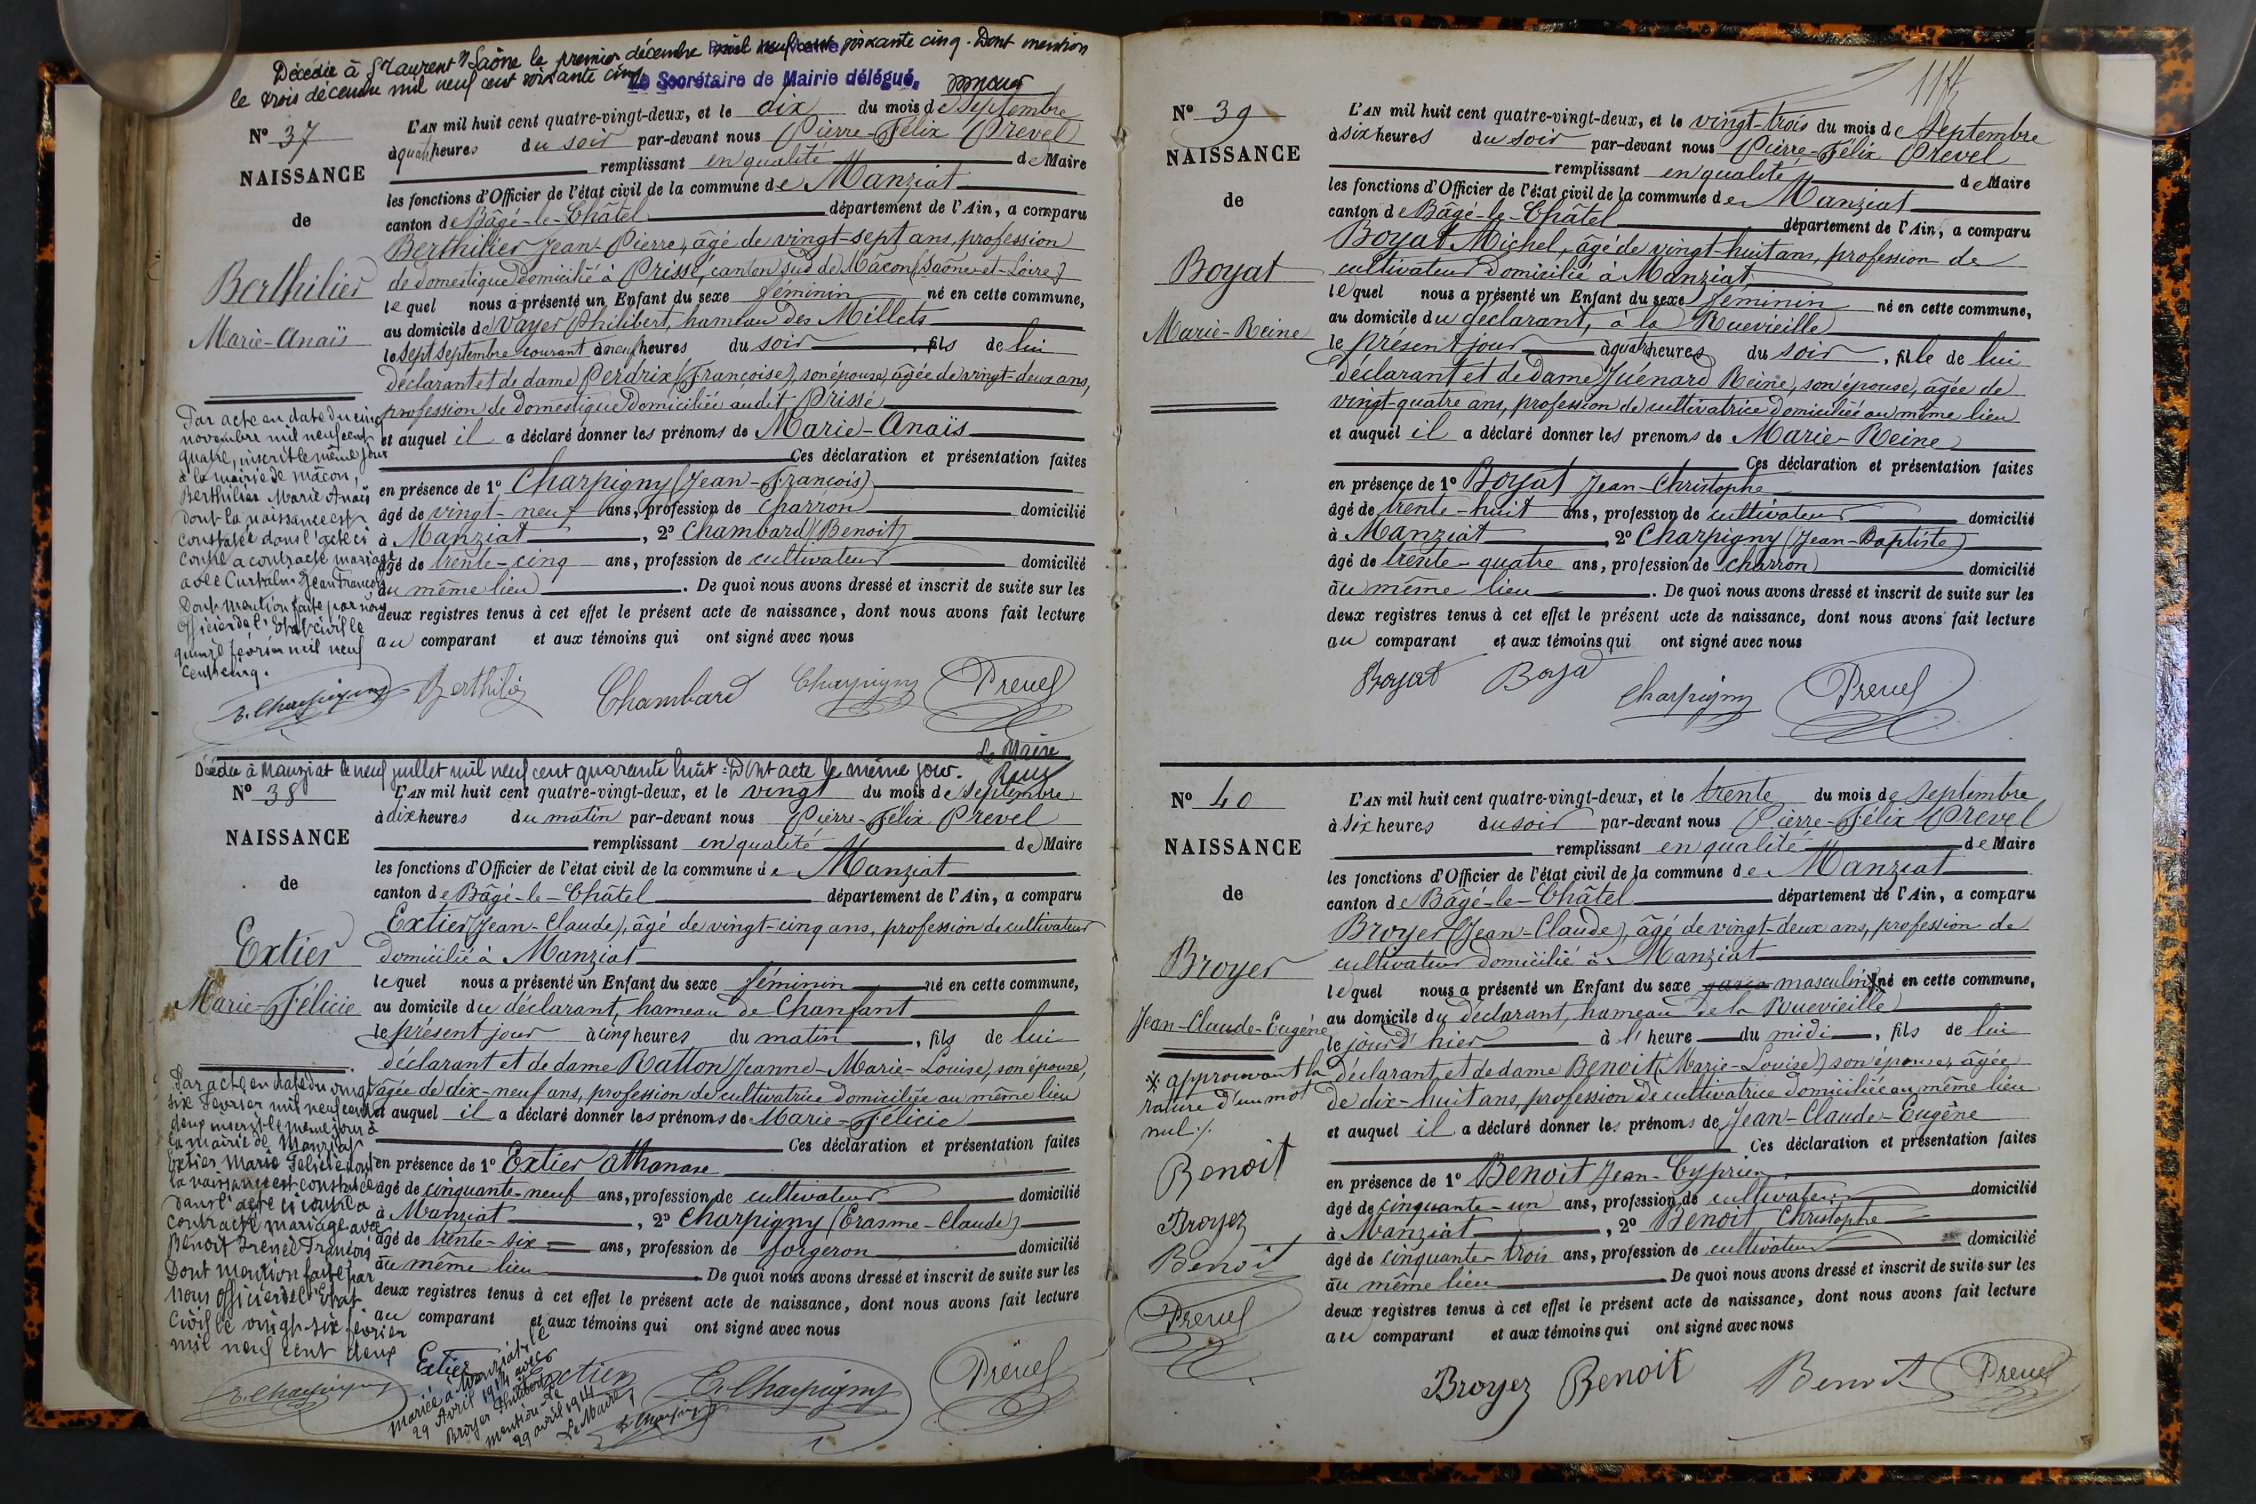 Décédée à St Laurent s/ Saône le premier décembre mil neuf cent soixante cinq. Dont mention
le trois décembre mil neuf cent soixante cinq
Le Secrétaire de Mairie délégué,
N° 37
NAISSANCE
de
Berthilier
Marie-Anaïs
L'AN mil huit cent quatre-vingt-deux, et le dix du mois de Septembre
à quatre heures du soir par-devant nous Pierre-Félix Prevel
remplissant en qualité de Maire
les fonctions d'Officier de l'état civil de la commune de Manziat
canton de Bâgé-le-Châtel département de l'Ain, a comparu
Berthilier Jean-Pierre, âgé de vingt-sept ans, profession
de domestique domicilié à Prissé, canton sud de Mâcon (Saône-et-Loire)
lequel nous a présenté un Enfant du sexe féminin né en cette commune,
au domicile de Vayer Philibert, hameau des Millets
le sept septembre courant à neuf heures du soir, fils de lui
déclarant et de dame Perdrix (Françoise), son épouse, âgée de vingt-deux ans,
profession de domestique domiciliée audit Prissé
et auquel il a déclaré donner les prénoms de Marie-Anaïs
Ces déclaration et présentation faites
en présence de 1° Charpigny (Jean-François)
âgé de vingt-neuf ans, profession de charron domicilié
à Manziat, 2° Chambard (Benoit)
âgé de trente-cinq ans, profession de cultivateur domicilié
au même lieu. De quoi nous avons dressé et inscrit de suite sur les
deux registres tenus à cet effet le présent acte de naissance, dont nous avons fait lecture
au comparant et aux témoins qui ont signé avec nous
Par acte en date du cinq
novembre mil neuf cent
quatre, inscrit le même jour
à la mairie de Mâcon,
Berthilier Marie Anaïs
dont la naissance est
constatée dans l'acte ci
contre a contracté mariage
avec Jean François
Dont mention faite par nous
officier de l'Etat civil le
quinze février mil neuf
cent cinq.
E. Charpigny Berthilier Chambard Charpigny Prevel
Le Maire
Décédée à Manziat le neuf juillet mil neuf cent quarante huit. Dont acte le même jour.
N° 38
NAISSANCE
de
Extier
Marie-Félicie
L'AN mil huit cent quatre-vingt-deux, et le vingt du mois de septembre
à dix heures du matin par-devant nous Pierre-Félix Prevel
remplissant en qualité de Maire
les fonctions d'Officier de l'état civil de la commune de Manziat
canton de Bâgé-le-Châtel département de l'Ain, a comparu
Extier (Jean-Claude), âgé de vingt-cinq ans, profession de cultivateur
domicilié à Manziat
lequel nous a présenté un Enfant du sexe féminin né en cette commune,
au domicile du déclarant, hameau de Chanfant
le présent jour à cinq heures du matin, fils de lui
déclarant et de dame Ratton (Jeanne-Marie-Louise), son épouse,
âgée de dix-neuf ans, profession de cultivatrice domiciliée au même lieu
et auquel il a déclaré donner les prénoms de Marie-Félicie
Ces déclaration et présentation faites
en présence de 1° Extier Athanase
âgé de cinquante-neuf ans, profession de cultivateur domicilié
à Manziat, 2° Charpigny (Erasme-Claude)
âgé de trente-six ans, profession de forgeron domicilié
au même lieu. De quoi nous avons dressé et inscrit de suite sur les
deux registres tenus à cet effet le présent acte de naissance, dont nous avons fait lecture
au comparant et aux témoins qui ont signé avec nous
Par acte en date du vingt
six Février mil neuf cent
deux inscrit le même jour à
la mairie de Manziat
Extier Marie Félicie dont
la naissance est constatée
dans l'acte ci contre a
contracté mariage avec
Benoit François
Dont mention faite par
nous officier de l'Etat
civil le vingt-six février
mil neuf cent deux
E. Charpigny Extier Extier E. Charpigny Prevel
Mariée à Manziat le
29 Avril 1914 avec
Broyer Philibert
mention le
29 avril 1914
Le Maire
N° 39
NAISSANCE
de
Boyat
Marie-Reine
L'AN mil huit cent quatre-vingt-deux, et le vingt-trois du mois de Septembre
à six heures du soir par-devant nous Pierre-Félix Prevel
remplissant en qualité de Maire
les fonctions d'Officier de l'état civil de la commune de Manziat
canton de Bâgé-le-Châtel département de l'Ain, a comparu
Boyat Michel, âgé de vingt-huit ans, profession de
cultivateur domicilié à Manziat
lequel nous a présenté un Enfant du sexe féminin né en cette commune,
au domicile du déclarant, à la Ruevieille
le présent jour à quatre heures du soir, fille de lui
déclarant et de dame Guénard Reine, son épouse, âgée de
vingt-quatre ans, profession de cultivatrice domiciliée au même lieu
et auquel il a déclaré donner les prenoms de Marie-Reine
Ces déclaration et présentation faites
en présence de 1° Boyat Jean-Christophe
âgé de trente-huit ans, profession de cultivateur domicilié
à Manziat, 2° Charpigny (Jean-Baptiste)
âgé de trente-quatre ans, profession de charron domicilié
au même lieu. De quoi nous avons dressé et inscrit de suite sur les
deux registres tenus à cet effet le présent acte de naissance, dont nous avons fait lecture
au comparant et aux témoins qui ont signé avec nous
Boyat Boyat Charpigny Prevel
N° 40
NAISSANCE
de
Broyer
Jean-Claude-Eugène
L'AN mil huit cent quatre-vingt-deux, et le trente du mois de Septembre
à six heures du soir par-devant nous Pierre-Félix Prevel
remplissant en qualité de Maire
les fonctions d'Officier de l'état civil de la commune de Manziat
canton de Bâgé-le-Châtel département de l'Ain, a comparu
Broyer (Jean-Claude), âgé de vingt-deux ans, profession de
cultivateur domicilié à Manziat
lequel nous a présenté un Enfant du sexe masculin né en cette commune,
au domicile du déclarant, hameau de la Ruevieille
le jour d'hier à l'heure du midi, fils de lui
déclarant et de dame Benoit (Marie-Louise) son épouse, âgée
de dix-huit ans, profession de cultivatrice domiciliée au même lieu
et auquel il a déclaré donner les prénoms de Jean-Claude-Eugène
Ces déclaration et présentation faites
en présence de 1° Benoit Jean-Cyprien
âgé de cinquante-un ans, profession de cultivateur domicilié
à Manziat, 2° Benoit Christophe
âgé de cinquante-trois ans, profession de cultivateur domicilié
au même lieu. De quoi nous avons dressé et inscrit de suite sur les
deux registres tenus à cet effet le présent acte de naissance, dont nous avons fait lecture
au comparant et aux témoins qui ont signé avec nous
approuvant la
rature d'un mot
nul
Benoit
Broyer
Benoit
Prevel
Broyer Benoit Benoit Prevel